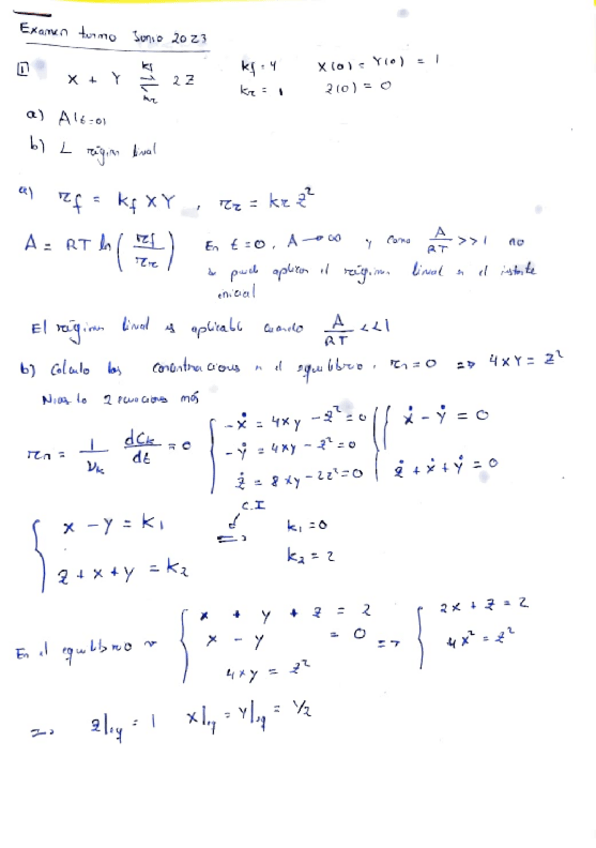 Examen turno Junio 2023
1 X + Y ⇌ 2Z kf = 4 X(0) = Y(0) = 1
kf kr kr = 1 Z(0) = 0
a) A(t=0)
b) L régimen lineal
a) rf = kf XY , rr = kr Z²
A = RT ln (rf/rr) En t=0, A → ∞ y como A/RT >> 1 no
se puede aplicar el régimen lineal en el instante
inicial
El régimen lineal es aplicable cuando A/RT << 1
b) Calculo las concentraciones en el equilibrio, rn = 0 => 4XY = Z²
2 ecuaciones más
rn = 1/νk dCk/dt = 0 { -ẋ = 4xy - z² = 0 { ẋ - ẏ = 0
-ẏ = 4xy - z² = 0
ż = 8xy - 2z² = 0 ż + ẋ + ẏ = 0
C.I
{ x - y = k1 => k1 = 0
z + x + y = k2 k2 = 2
En el equilibrio { x + y + z = 2 { 2x + z = 2
x - y = 0 =>
4xy = z² 4x² = z²
=> z|eq = 1 x|eq = y|eq = 1/2